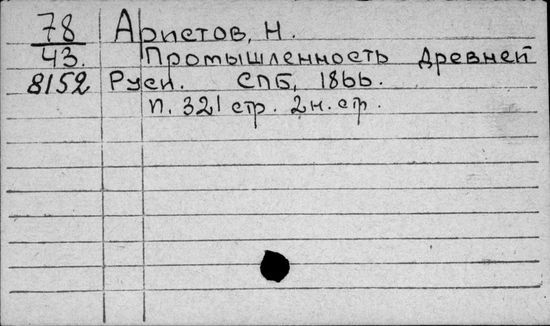 78 Аристов, Н.
43. Промышленность древней
8152 Руси. СПБ, 1866.
п. 321 стр. 2 н. стр.